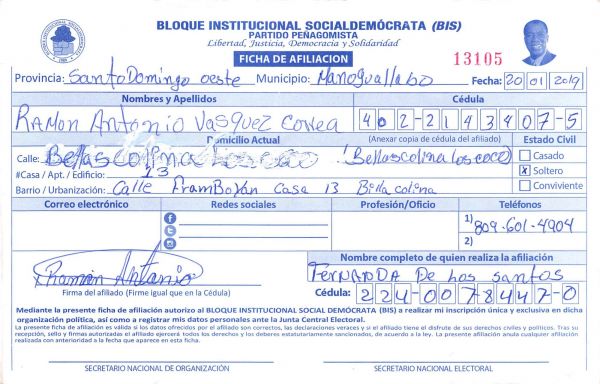 BLOQUE INSTITUCIONAL SOCIALDEMÓCRATA (BIS)
PARTIDO PEÑAGOMISTA
Libertad, Justicia, Democracia y Solidaridad
FICHA DE AFILIACION
13105
Provincia: Santo Domingo oeste Municipio: Manoguallabo Fecha: 20 01 2019
Nombres y Apellidos Cédula
Ramon Antonio Vasquez Correa 402-2143407-5
Domicilio Actual (Anexar copia de cédula del afiliado) Estado Civil
Calle: Bellascolina los coco (Bellascolina los coco) Casado
#Casa / Apt. / Edificio: 13 X Soltero
Barrio / Urbanización: Calle Framboyan Casa 13 Bella colina Conviviente
Correo electrónico Redes sociales Profesión/Oficio Teléfonos
1) 809-601-4904
2)
Nombre completo de quien realiza la afiliación
Ramon Antonio FERNANDA De Los santos
Firma del afiliado (Firme igual que en la Cédula) Cédula: 224-0078447-0
Mediante la presente ficha de afiliación autorizo al BLOQUE INSTITUCIONAL SOCIAL DEMÓCRATA (BIS) a realizar mi inscripción única y exclusiva en dicha
organización política, así como a registrar mis datos personales ante la Junta Central Electoral.
La presente ficha de afiliación es válida si los datos ofrecidos por el afiliado son correctos, las declaraciones veraces y si el afiliado tiene el disfrute de sus derechos civiles y políticos. Tras su
recepción, sello y firmas autorizadas el afiliado ejercerá todos los derechos y los deberes estatutariamente sancionados, de acuerdo a la ley. La presente afiliación anula cualquier afiliación
realizada con anterioridad a la fecha que aparece en esta ficha.
SECRETARIO NACIONAL DE ORGANIZACIÓN SECRETARIO NACIONAL ELECTORAL